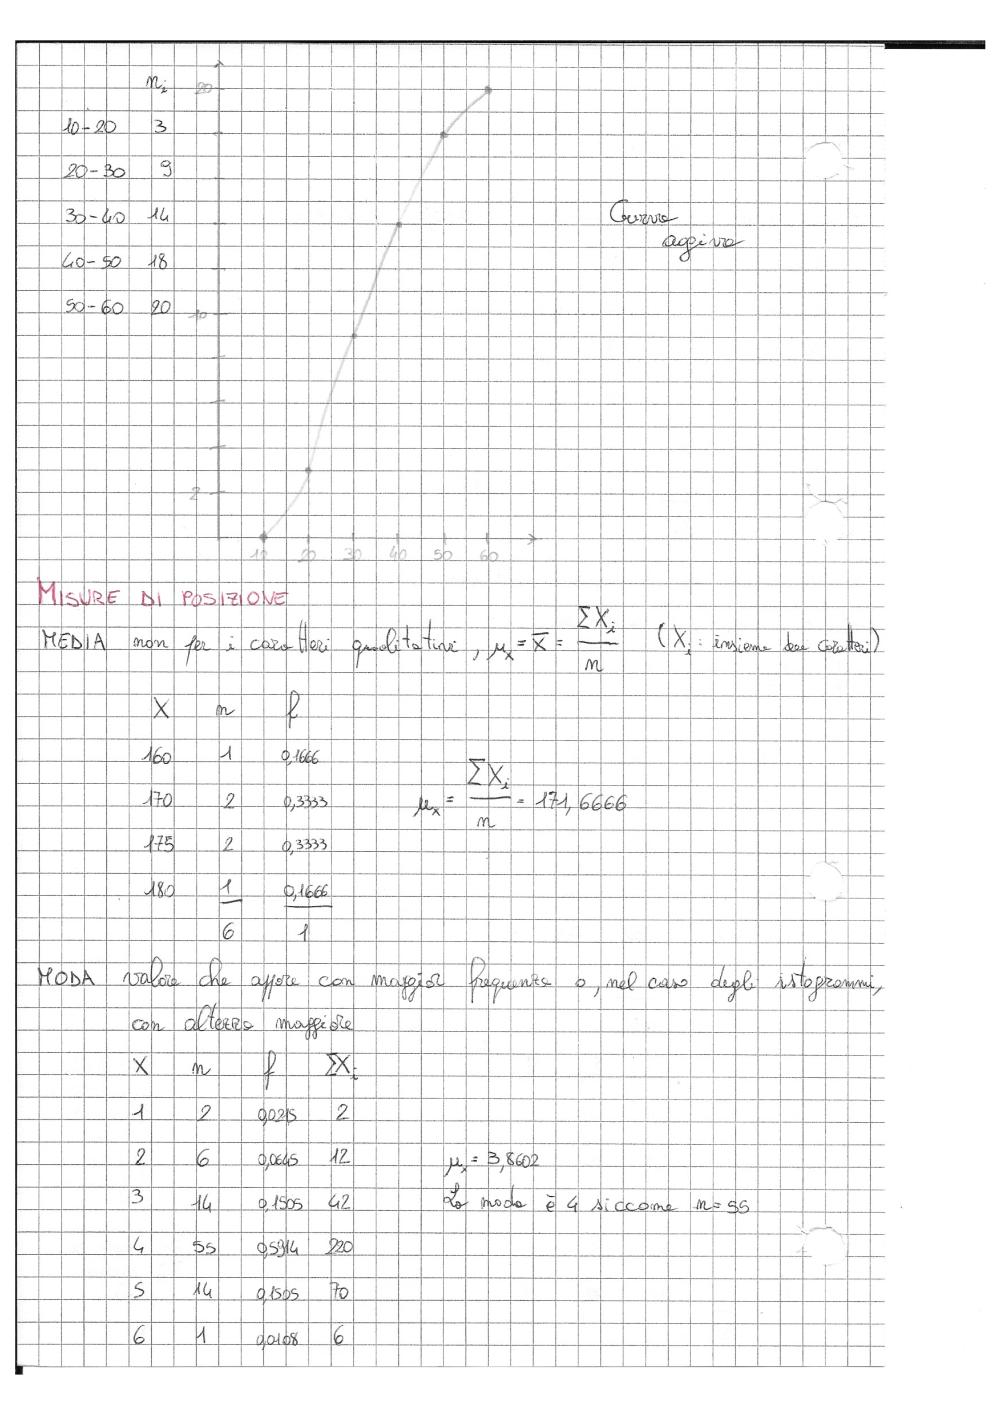 n_i
10-20 3
20-30 9
30-40 14
40-50 18
50-60 20
20
10
2
10 20 30 40 50 60
Curva
ogiva
MISURE DI POSIZIONE
MEDIA non per i caratteri qualitativi, μ_x = X̄ = ΣX_i / n (X_i: insieme dei caratteri)
X n f
160 1 0,1666
170 2 0,3333
175 2 0,3333
180 1 0,1666
6 1
μ_x = ΣX_i / n = 171,6666
MODA valore che appare con maggior frequenza o, nel caso degli istogrammi,
con altezza maggiore
X n f ΣX_i
1 2 0,0215 2
2 6 0,0645 12
3 14 0,1505 42
4 55 0,5914 220
5 14 0,1505 70
6 1 0,0108 6
μ_x = 3,8602
La moda è 4 siccome n=55